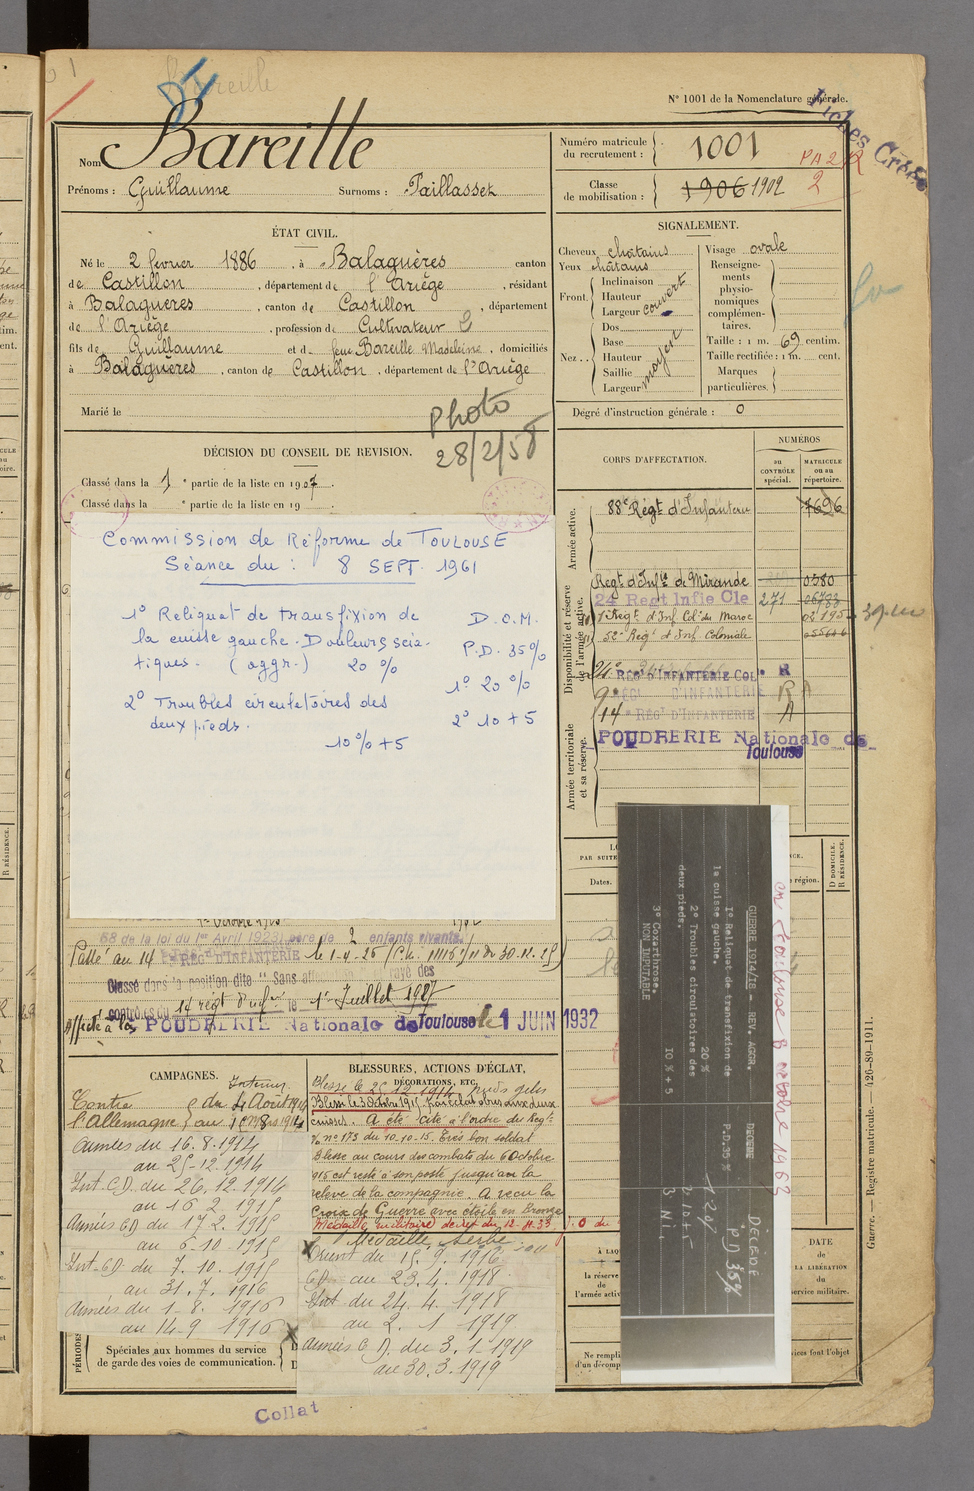 Bareille
N° 1001 de la Nomenclature générale.
Fiches Créée
Nom Bareille
Prénoms : Guillaume Surnoms : Taillasset
Numéro matricule du recrutement : 1001
PA 2 R
2
Classe de mobilisation : 1906 1902
ÉTAT CIVIL.
Né le 2 février 1886, à Balaguères canton
de Castillon, département de l'Ariège, résidant
à Balaguères, canton de Castillon, département
de l'Ariège, profession de Cultivateur
fils de Guillaume et de feue Bareille Madeleine, domiciliés
à Balaguères, canton de Castillon, département de l'Ariège
Marié le
Photo
28/2/58
SIGNALEMENT.
Cheveux châtains
Yeux châtains
Front. Inclinaison
Hauteur
Largeur couvert
Nez. Dos
Base
Hauteur
Saillie
Largeur moyen
Visage ovale
Renseignements physionomiques complémentaires.
Taille : 1 m. 69 centim.
Taille rectifiée : 1 m. cent.
Marques particulières.
Degré d'instruction générale : 0
DÉCISION DU CONSEIL DE REVISION.
Classé dans la 1 e partie de la liste en 1907.
Classé dans la e partie de la liste en 19
CORPS D'AFFECTATION.
NUMÉROS
au CONTRÔLE spécial.
MATRICULE ou au répertoire.
Armée active.
88e Régt d'Infanterie 7696
Disponibilité et réserve de l'armée active.
Régt d'Infie de Mirande 0580
24 Regt Infie Cle 271
1er Régt d'Inf. Col. du Maroc
52e Régt d'Inf Coloniale
24e REGt D'INFANTERIE COLe R
9e REGt D'INFANTERIE R A
14e REGt D'INFANTERIE A
Armée territoriale et sa réserve.
POUDRERIE Nationale de
Toulouse
Commission de Réforme de TOULOUSE
Séance du : 8 SEPT. 1961
1° Reliquat de transfixion de
la cuisse gauche. Douleurs scia-
tiques. (aggr.) 20 %
2° Troubles circulatoires des
deux pieds.
10% + 5
D.O.M.
P.D. 35%
1° 20 %
2° 10 + 5
68 de la loi du 1er Avril 1923) père de 2 enfants vivants.
Passé au 14e REGt D'INFANTERIE le 1-4-26
Classé dans la position dite "Sans affectation" rayé des
contrôles du 14 régt d'infie le 1er Juillet 1927
Affecté à la POUDRERIE Nationale de Toulouse le 1 JUIN 1932
Dates.
D DOMICILE.
R RÉSIDENCE.
GUERRE 1914/18 - REV. AGGR. DECEDE
1° Reliquat de transfixion de
la cuisse gauche.
20 % P.D. 35 %
2° Troubles circulatoires des
deux pieds.
10 % + 5
3° Coxarthrose.
NON IMPUTABLE
DÉCÉDÉ
P D 35%
1. 20%
2. 10 + 5
3 N i.
CAMPAGNES.
Contre l'Allemagne
Intérieur
Armées du 16.8.1914
au 25-12.1914
Int. CD. du 26.12.1914
au 16 2 1915
Armées CD du 17 2. 1915
au 6-10-1915
Int-CD du 7.10.1915
au 31.7.1916
Armées du 1-8.1916
au 14-9 1916
BLESSURES, ACTIONS D'ÉCLAT, DÉCORATIONS, ETC.
Blessé le 25 12 1914 pieds gelés
Blessé le 3 Octobre 1915 par éclat d'obus aux deux
cuisses. A été cité à l'ordre du Régt
n° 173 du 10-10-15. Très bon soldat
Blessé au cours des combats du 6 Octobre
915 est resté à son poste jusqu'au la
relève de la compagnie. A reçu la
Croix de Guerre avec étoile en Bronze
Médaille militaire décret du 12-4-33 J.O du
Médaille Serbe
Orient du 15.9.1916
CD au 23.4.1918
Int du 24.4.1918
au 2.1 1919
Armées CD. du 3.1-1919
au 30.3.1919
PÉRIODES
Spéciales aux hommes du service
de garde des voies de communication.
DATE
de LA LIBÉRATION
du service militaire.
Guerre. — Registre matricule. — 426-89-1911.
Collat